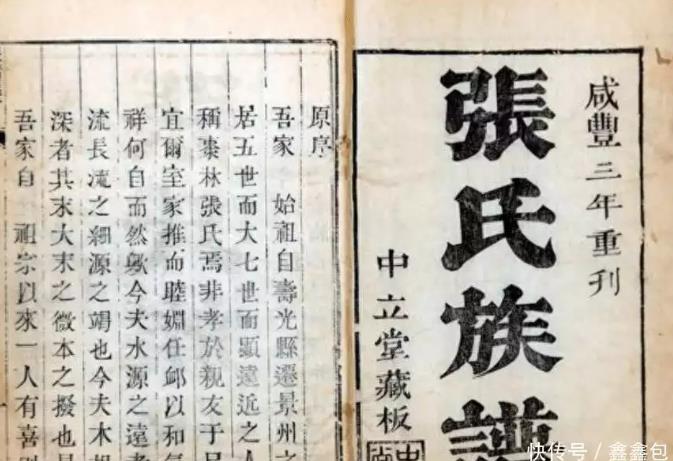 咸豐三年重刊
張氏族譜
中立堂藏板
原序
吾家　始祖自壽光縣遷景州之
居五世而大七世而顯遠近之人
稱棗林張氏焉非孝於親友于
宜爾室家推而睦婣任卹以和氣
祥何自而然歟今夫水源之遠者
流長流之細源之竭也今夫木根
深者其末大末之微本之撥也
吾家自　祖宗以來一人有喜
快传号/鑫鑫包